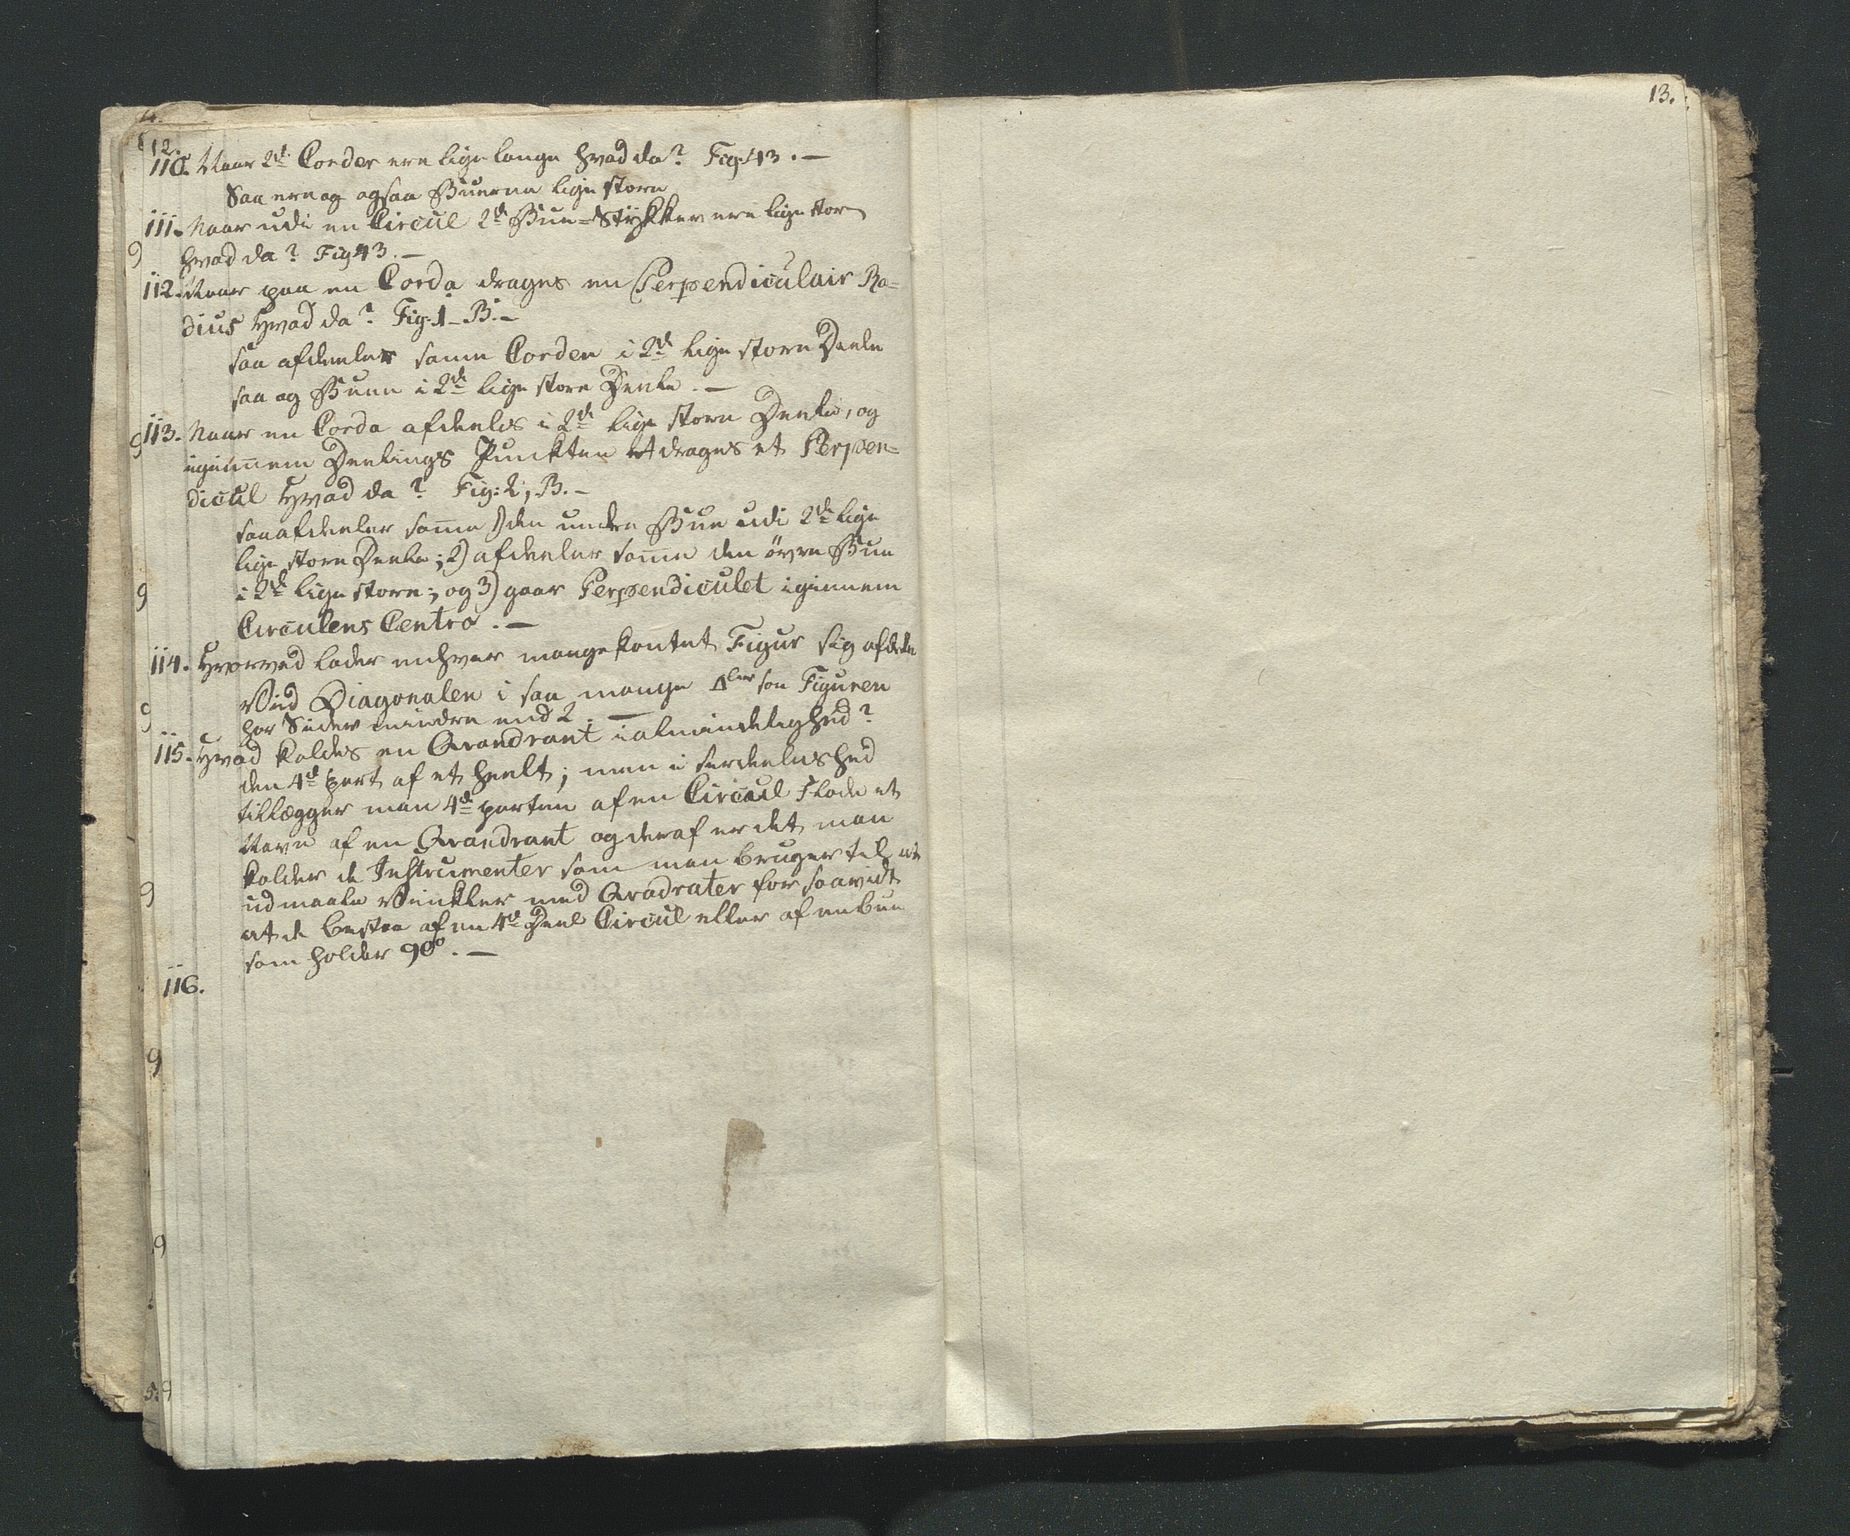 12.
110. Naar 2de Corder ere lige lange hvad da? Fig: 43. —
Saa ere og ogsaa Buerne lige store
111. Naar udi en Circul 2de Bue=Stykker ere lige store
hvad da? Fig 43. —
112. Naar paa en Corda drages en Perpendiculair Ra=
dius hvad da? Fig: 1 – B. –
saa afdeeler samme Corden i 2de lige store Deele
saa og Buen i 2de lige store Deele. —
113. Naar en Corda afdeeles i 2de lige store Deele, og
igiennem Deelings Punkten drages et Perpen=
dicul hvad da? Fig: 2, B. –
saa afdeeler samme 1) den undre Bue udi 2de lige
lige store Deele; 2) afdeeler samme den øvre Bue
i 2de lige store; og 3) gaar Perpendiculet igiennem
Circulens Centro. —
114. Hvorved lader enhver mangekantet Figur sig afdele
Ved Diagonalen i saa mange Δler som Figuren
har Sider mindre end 2. —
115. Hvad kaldes en Qvandrant i almindelighed?
den 4de part af et heelt; men i serdeeleshed
tillægger man 4de parten af en Circul Flade et
Navn af en Qvandrant og deraf er det man
kalder de Instrumenter som man bruger til at
udmaale Vinkler med Qvadrater for saavidt
at de bestaa af en 4de Deel Circul eller af en bue
som holder 90°. —
116.
13.